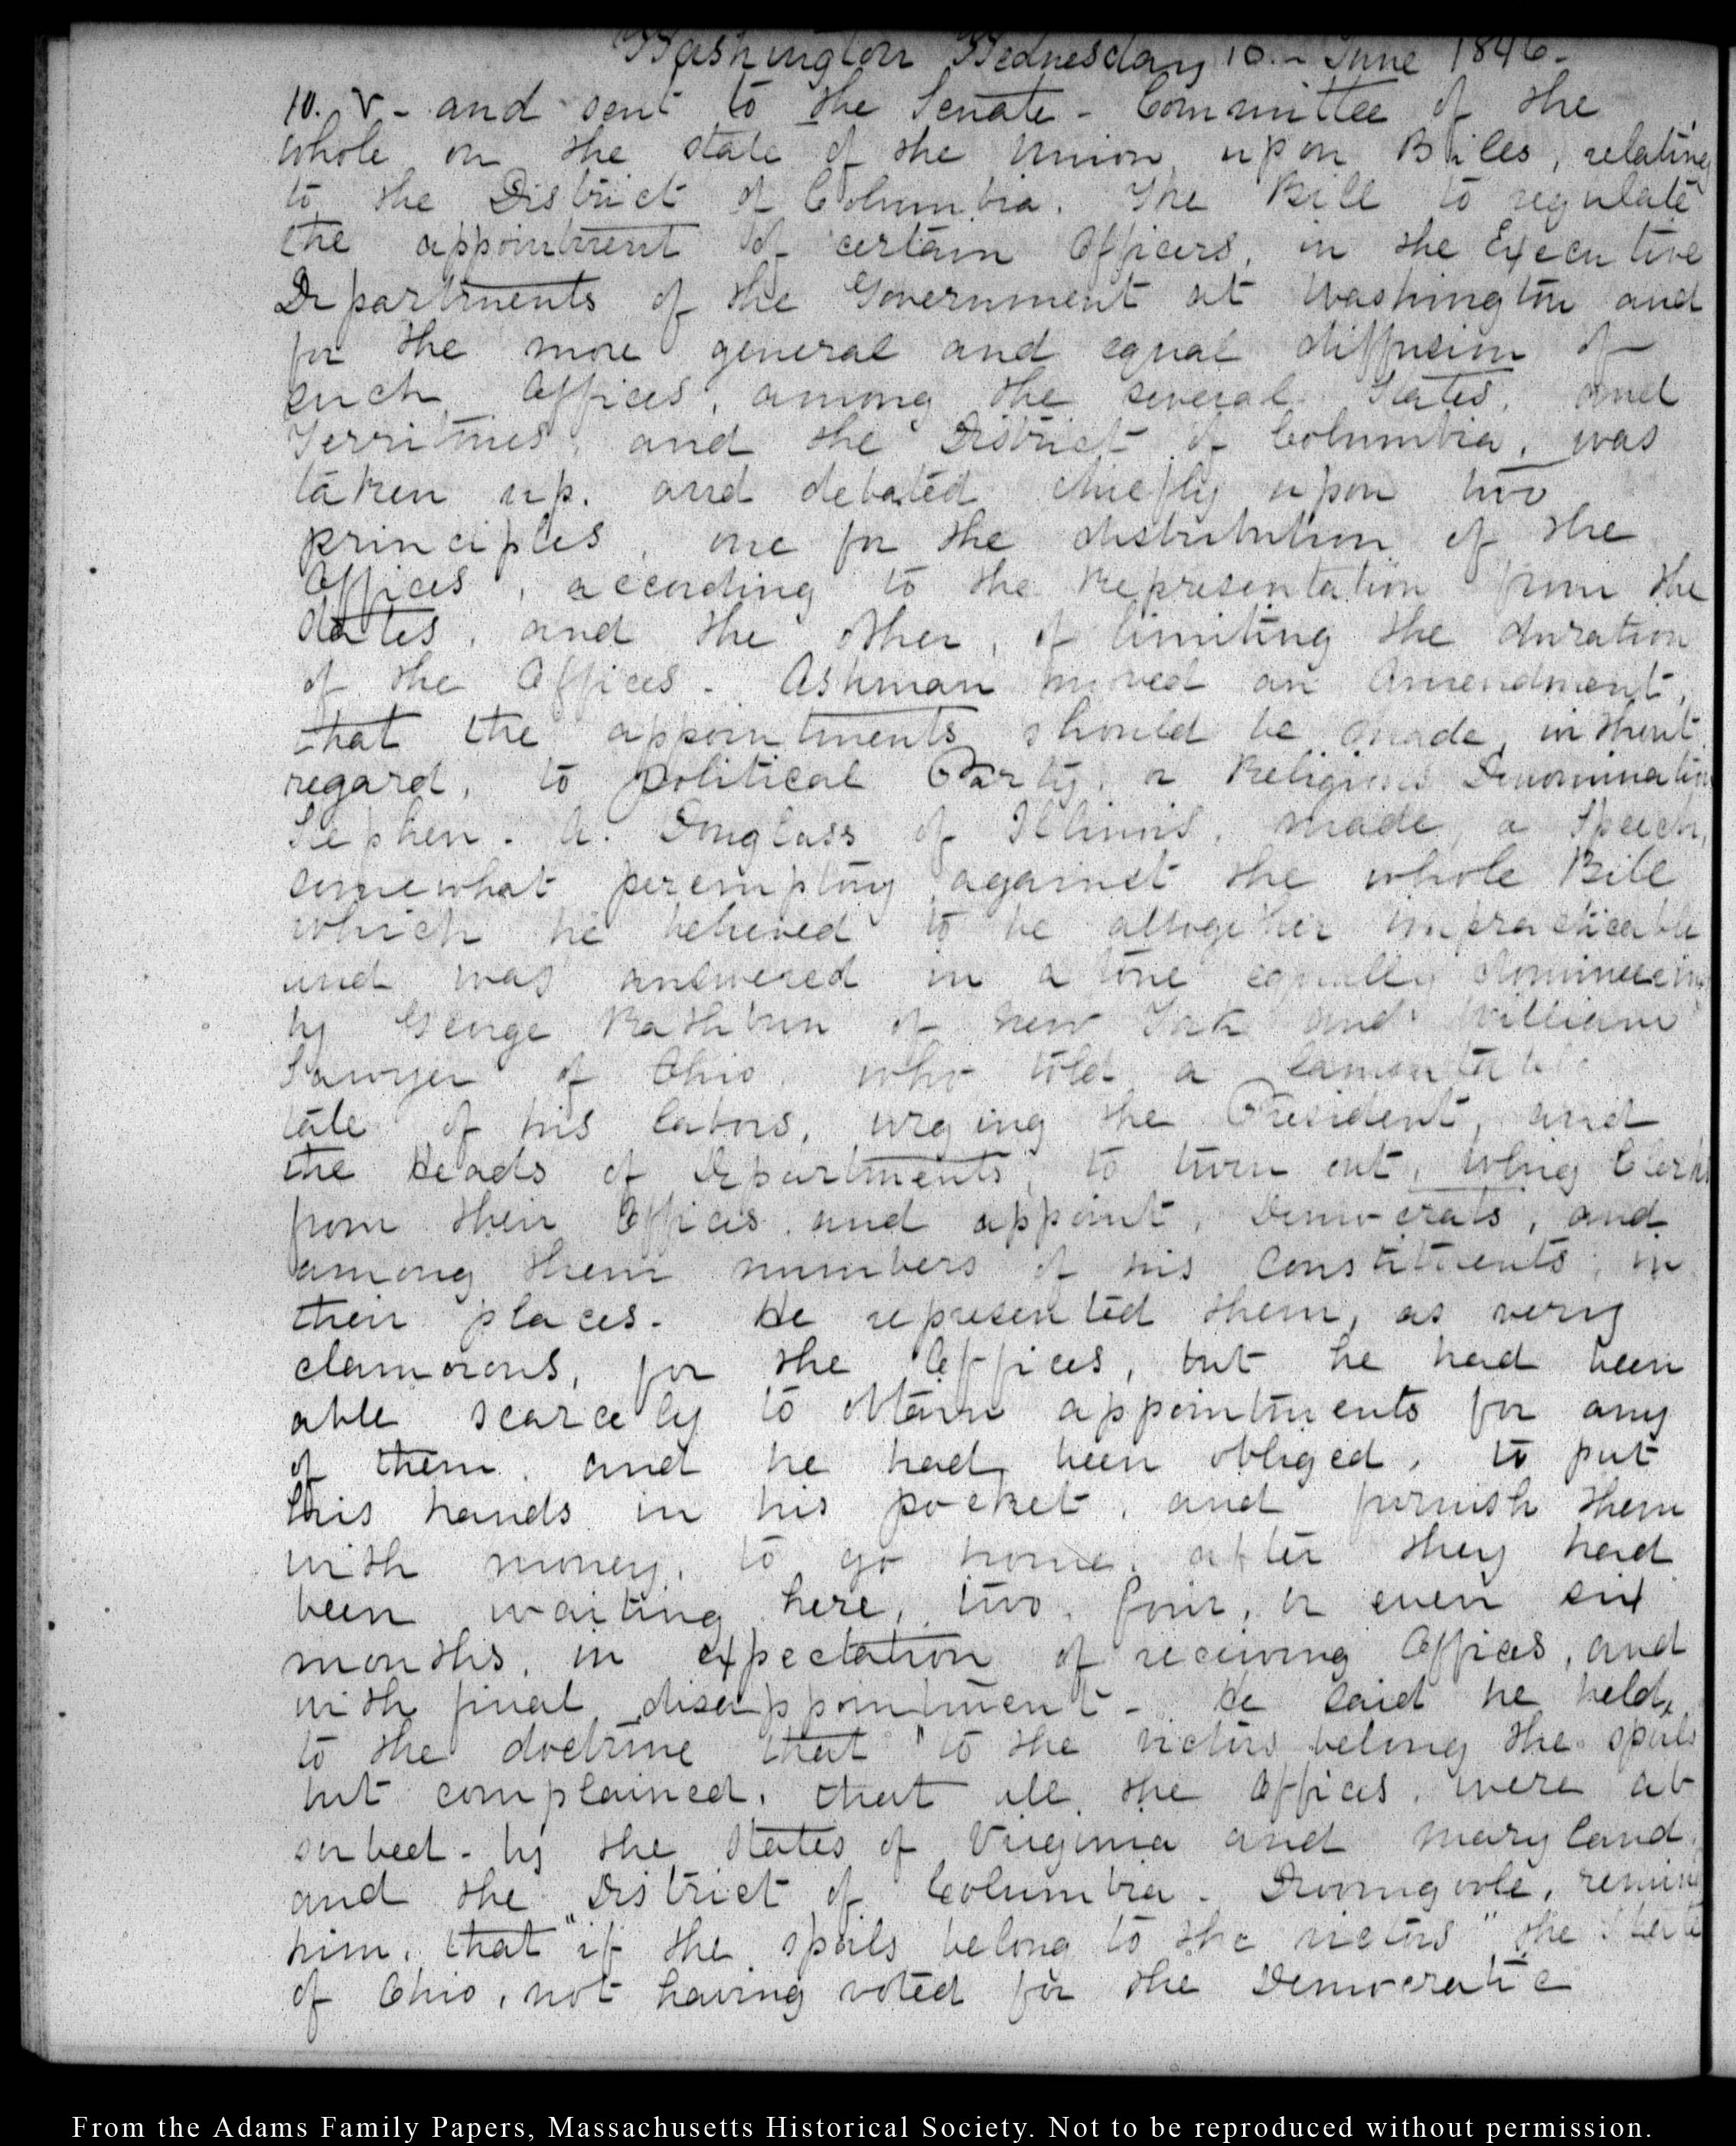 Washington Wednesday 10.- June 1846-
10. V- and sent to the Senate - Committee of the
whole on the state of the Union, upon Bills, relating
to the District of Columbia. The Bill to regulate
the appointment of certain Officers, in the Executive
Departments of the Government at Washington and
for the more general and equal diffusion of
such Offices, among the several States, and
Territories, and the District of Columbia, was
taken up, and debated chiefly upon two
principles, one for the distribution of the
Offices, according to the Representation from the
States, and the other, of limiting the duration
of the Offices. Ashman moved an Amendment,
that the appointments should be made, without
regard, to political Party, or Religious Denomination
Stephen. A. Douglass of Illinois, made, a Speech,
somewhat peremptory against the whole Bill
which he believed to be altogether impracticable
and was answered in a tone equally domineering
by George Rathbun of New York and William
Sawyer of Ohio, who told a lamentable
tale of his labors, urging the President, and
the Heads of Departments, to turn out, Whig Clerks
from their Offices, and appoint, Democrats, and
among them numbers of his Constituents, in
their places. He represented them, as very
clamorous, for the Offices, but he had been
able scarcely to obtain appointments for any
of them, and he had been obliged, to put
his hands in his pocket, and furnish them
with money, to go home, after they had
been waiting here, two, four, or even six
months, in expectation of receiving Offices, and
with final disappointment - He said he held,
to the doctrine that "to the victors belong the spoils
but complained, that all the Offices, were ab
sorbed - by the States of Virginia and Maryland,
and the District of Columbia. Dromgoole,
him, that "if the spoils belong to the victors" the State
of Ohio, not having voted for the Democratic
From the Adams Family Papers, Massachusetts Historical Society. Not to be reproduced without permission.